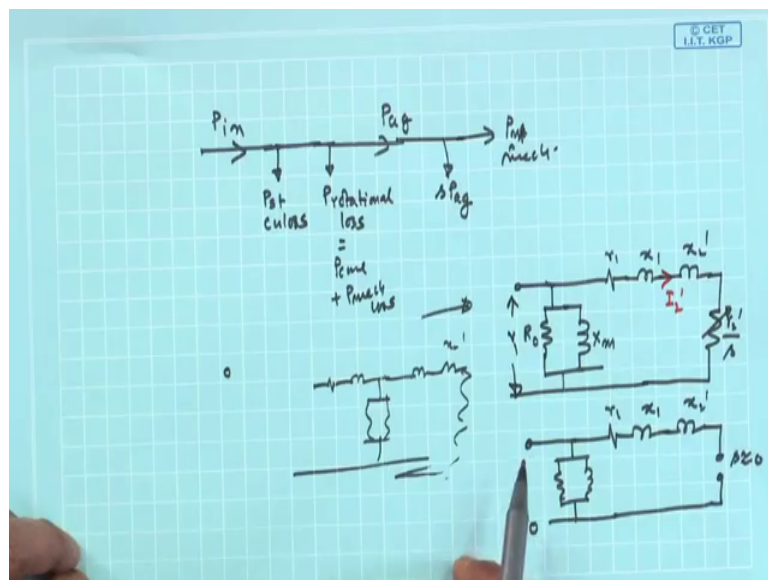 © CET
I.I.T. KGP
Pin
Pag
mech.
Pst
cu loss
Protational
loss
=
+ Pmech
loss
sPag
r1 x1 x2'
I2'
V
R0
Xm
r2'
s
x2'
r1 x1 x2'
s≈0